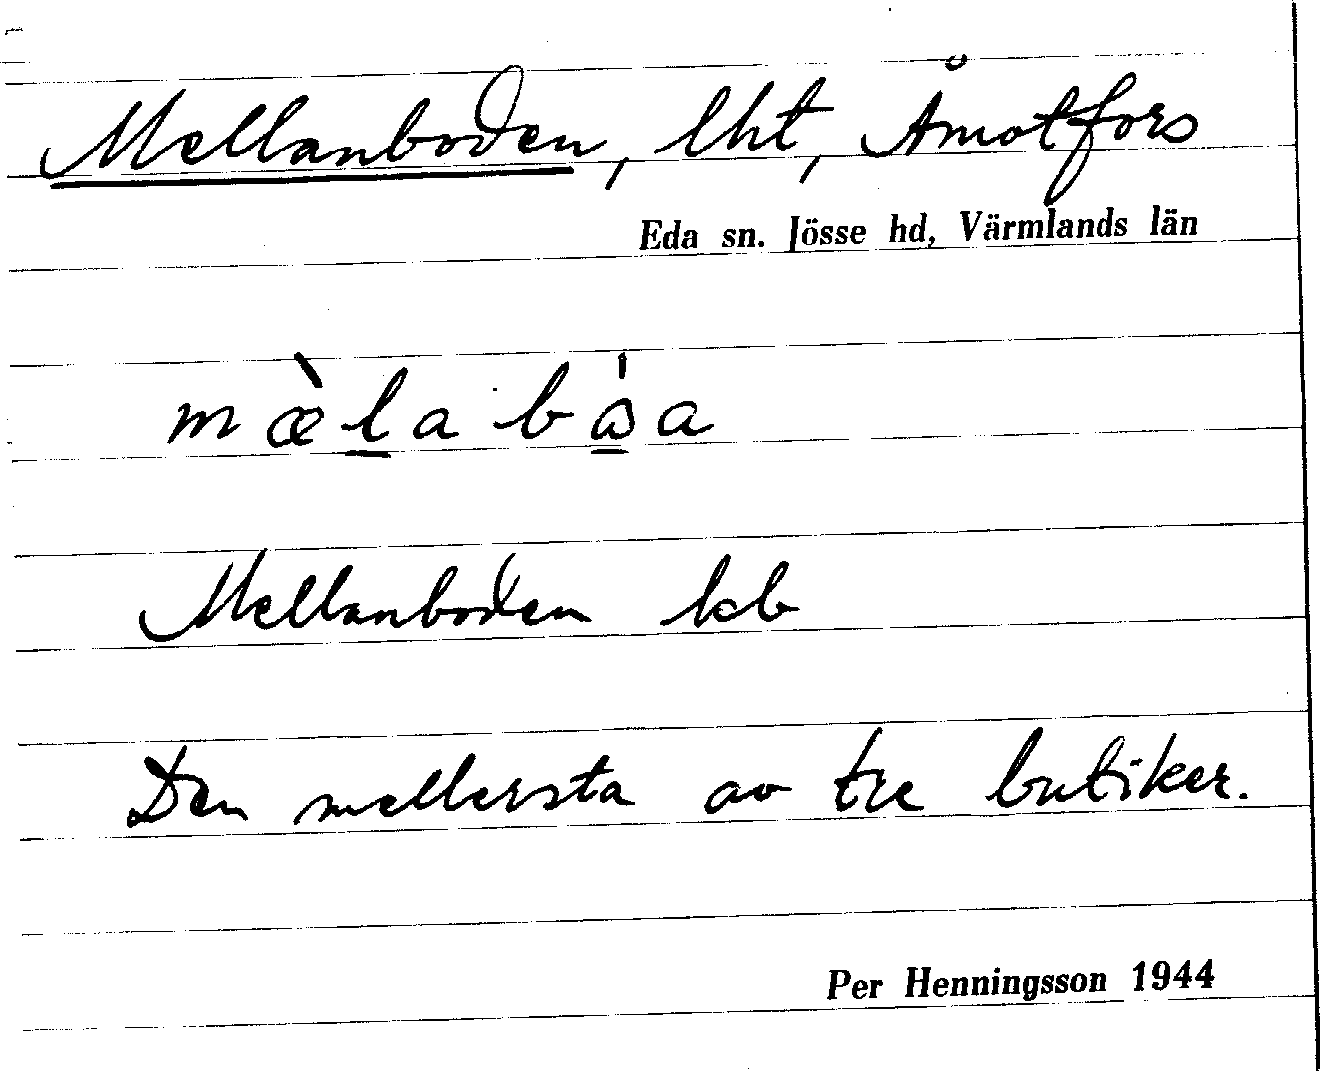 Mellanboden, lht, Åmotfors
Eda sn. Jösse hd, Värmlands län
mæ̀l̲a bå̲̍a
Mellanboden kb
Den mellersta av tre butiker.
Per Henningsson 1944